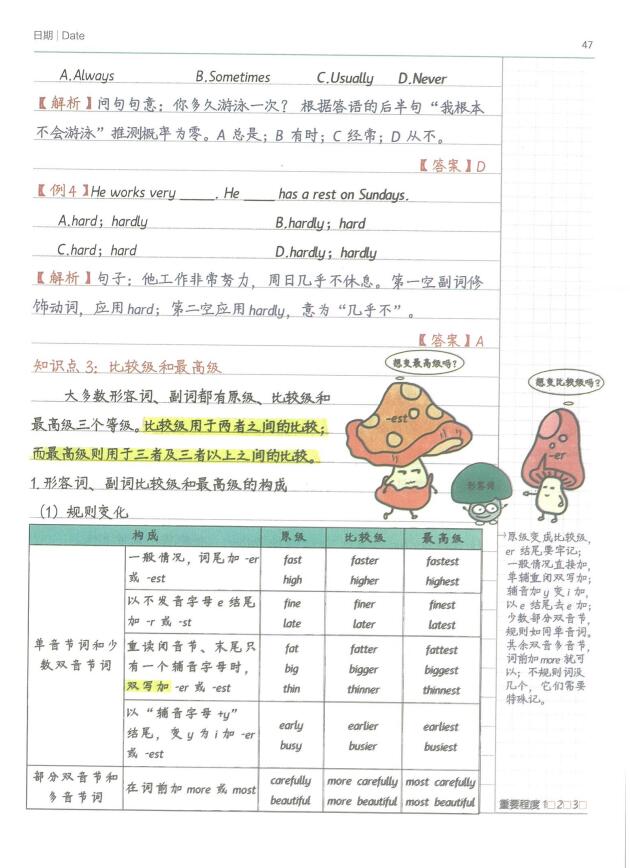 日期 | Date
47
A.Always B.Sometimes C.Usually D.Never
【解析】问句句意：你多久游泳一次？ 根据答语的后半句“我根本
不会游泳”推测概率为零。A 总是；B 有时；C 经常；D 从不。
【答案】D
【例4】He works very _____. He _____ has a rest on Sundays.
A.hard；hardly B.hardly；hard
C.hard；hard D.hardly；hardly
【解析】句子：他工作非常努力，周日几乎不休息。第一空副词修
饰动词，应用hard；第二空应用hardly，意为“几乎不”。
【答案】A
知识点3：比较级和最高级
想变最高级吗?
想变比较级吗?
大多数形容词、副词都有原级、比较级和
最高级三个等级。比较级用于两者之间的比较；
而最高级则用于三者及三者以上之间的比较。
-est
-er
形容词
1.形容词、副词比较级和最高级的构成
（1）规则变化
构成 原级 比较级 最高级
单音节词和少
数双音节词
一般情况，词尾加 -er
或 -est
fast faster fastest
high higher highest
以不发音字母e结尾
加 -r 或 -st
fine finer finest
late later latest
重读闭音节、末尾只
有一个辅音字母时，
双写加 -er 或 -est
fat fatter fattest
big bigger biggest
thin thinner thinnest
以“辅音字母+y”
结尾，变y为i加 -er
或 -est
early earlier earliest
busy busier busiest
部分双音节和
多音节词
在词前加 more 或 most
carefully more carefully most carefully
beautiful more beautiful most beautiful
原级变成比较级，
er 结尾要牢记；
一般情况直接加，
单辅重闭双写加；
辅音加y变i加，
以e结尾去e加；
少数部分双音节，
规则如同单音词。
其余双音多音节，
词前加more就可
以；不规则词没
几个，它们需要
特殊记。
重要程度 1□2□3□